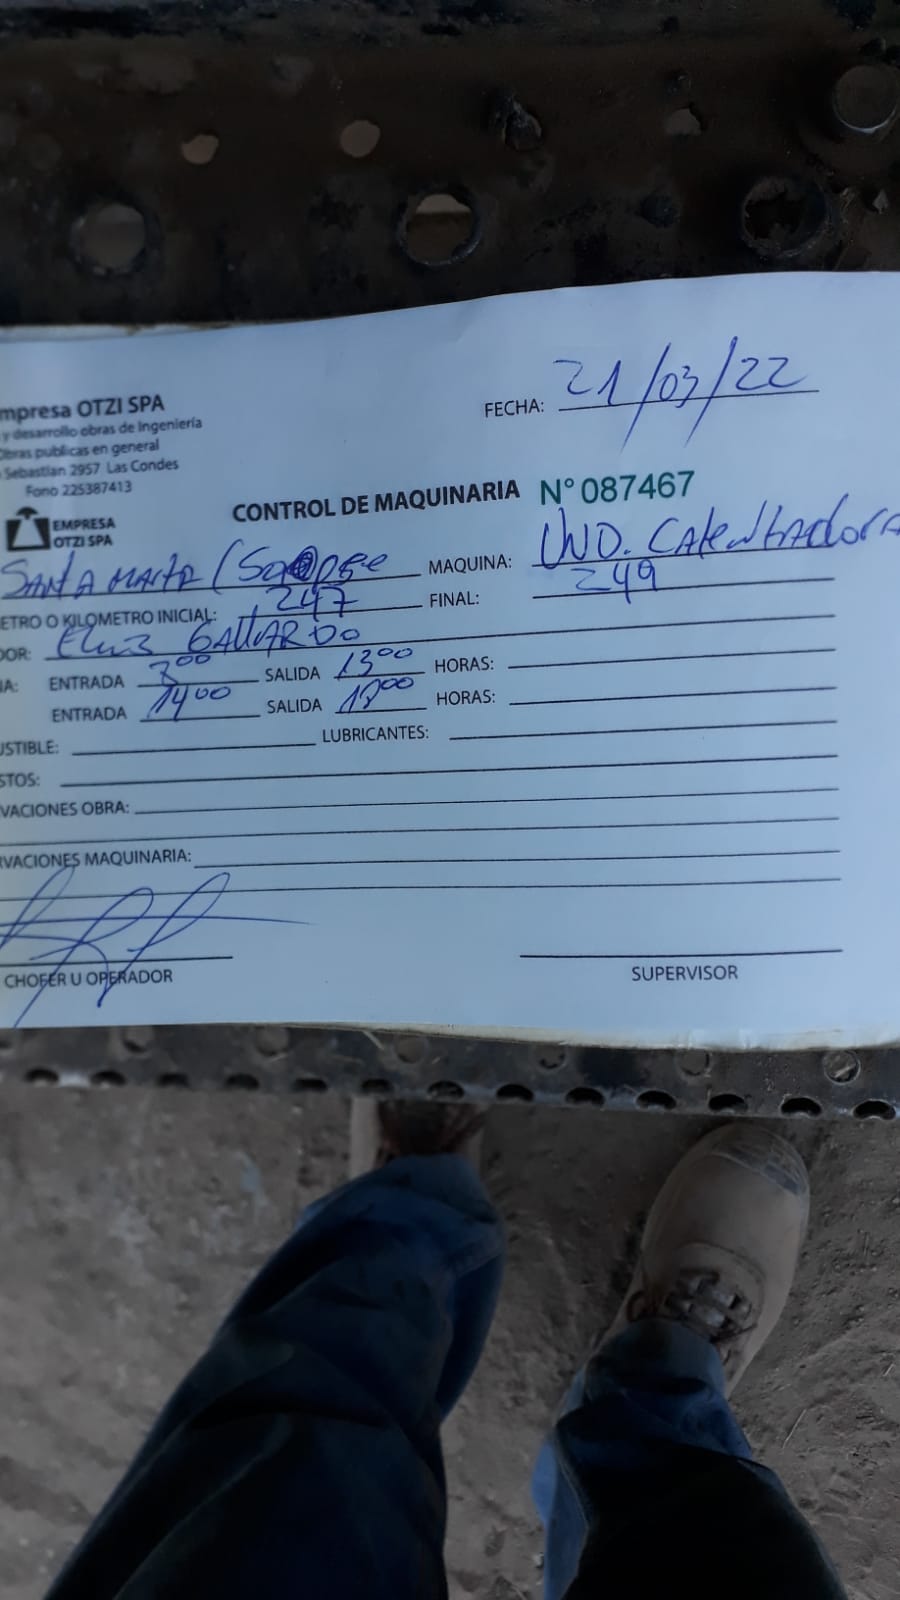 mpresa OTZI SPA
y desarrollo obras de Ingeniería
Obras publicas en general
Sebastian 2957 Las Condes
Fono 225387413
EMPRESA
OTZI SPA
FECHA: 21/03/22
CONTROL DE MAQUINARIA N° 087467
SANTA MARTA MAQUINA: UND. Calentadora
ETRO O KILOMETRO INICIAL: 247 FINAL: 249
DOR: GALLARDO
IA: ENTRADA SALIDA 1300 HORAS:
ENTRADA 1400 SALIDA HORAS:
USTIBLE: LUBRICANTES:
STOS:
VACIONES OBRA:
RVACIONES MAQUINARIA:
CHOFER U OPERADOR SUPERVISOR